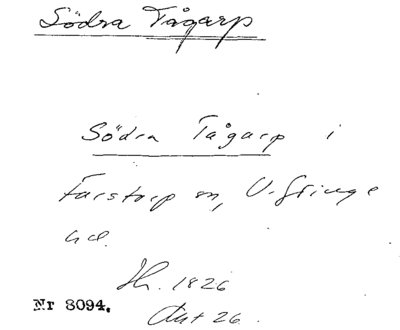 Södra Tågarp
Södra Tågarp i
Farstorp sn, V. Göinge
hd.
Jh. 1826
Nr 8094.